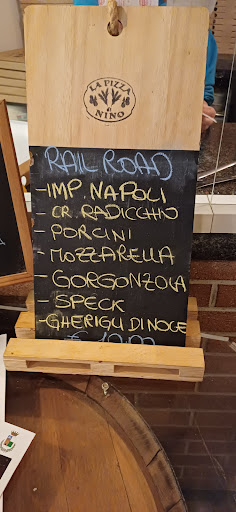 LA PIZZA
di
NINO
RAIL ROAD
- IMP. NAPOLI
- CR. RADICCHIO
- PORCINI
- MOZZARELLA
- GORGONZOLA
- SPECK
- GHERIGLI DI NOCE